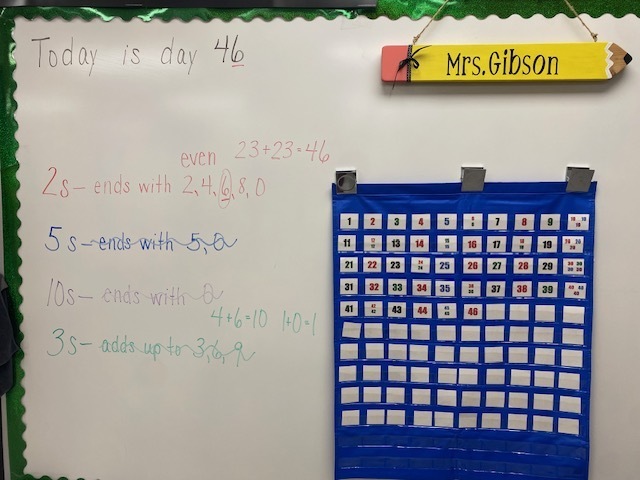 Today is day 46
Mrs.Gibson
even 23+23=46
2s- ends with 2,4,6,8,0
5s- ends with 5,0
10s- ends with 0
4+6=10 1+0=1
3s- adds up to 3,6,9
1 2 3 4 5 6 6 7 8 9 10 10 10
11 12 12 13 14 15 15 16 17 18 18 19 20 20 20
21 22 23 24 24 25 26 27 28 29 30 30 30
31 32 33 34 35 36 36 37 38 39 40 40 40
41 42 42 43 44 45 45 46